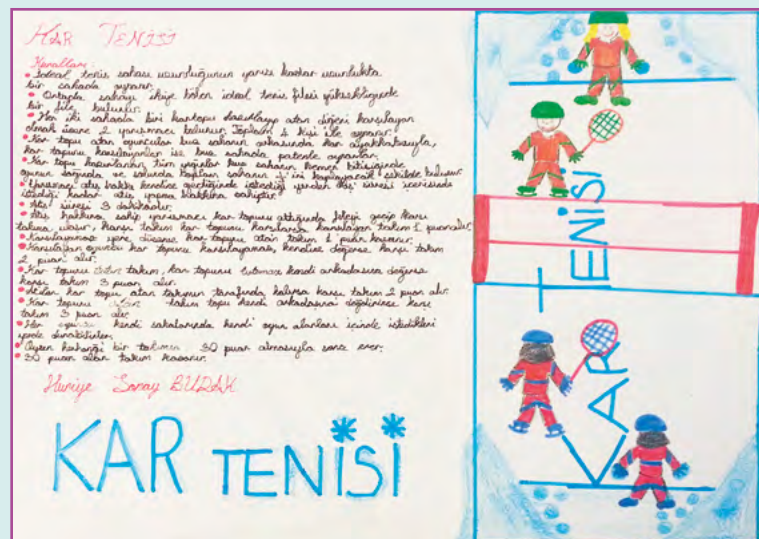 KAR TENİSİ
Kuralları:
• İdeal tenis sahası uzunluğunun yarısı kadar uzunlukta
bir sahada oynanır.
• Ortada sahayı ikiye bölen ideal tenis filesi yüksekliğinde
bir file bulunur.
• Her iki sahada biri kartopu hazırlayıp atan diğeri karşılayan
olmak üzere 2 yarışmacı bulunur. Toplam 4 kişi ile oynanır.
• Kar topu atan oyuncular buz sahanın arkasında kar ayakkabısıyla,
kar topunu karşılayanlar ise buz sahada patenle oynarlar.
• Kar topu hazırlanan, tüm yığınlar buz sahanın hemen bitişiğinde
oyunun sağında ve solunda kaplam sahanın kaplayacak şekilde bulunur.
• Yarışmacı atış hakkı kendine geçtiğinde istediği yerden atış süresi içerisinde
istediği kadar atış yapma hakkına sahiptir.
• Atış süresi 3 dakikadır.
• Atış hakkına sahip yarışmacı kar topunu attığında fileyi geçip karşı
takıma ulaşır, karşı takım kar topunu karşılarsa karşılayan takım 1 puan alır.
• Karşılayamaz yere düşerse kar topunu atan takım 1 puan kazanır.
• Karşılayan oyuncu kar topunu karşılayamaz, kendine değerse karşı takım
2 puan alır.
• Kar topunu takım, kar topunu kendi arkadaşına değerse
karşı takım 3 puan alır.
• Atılan kar topu atan takımın tarafında kalırsa karşı takım 2 puan alır.
• Kar topunu takım topu kendi arkadaşına değdirirse karşı
takım 3 puan alır.
• Her oyuncu kendi sahalarında kendi oyun alanları içinde istedikleri
yerde durabilirler.
• Oyun herhangi bir takımın 30 puan almasıyla sona erer.
• 30 puan alan takım kazanır.
Huriye Sonay BUDAK
KAR TENİSİ
KAR TENİSİ